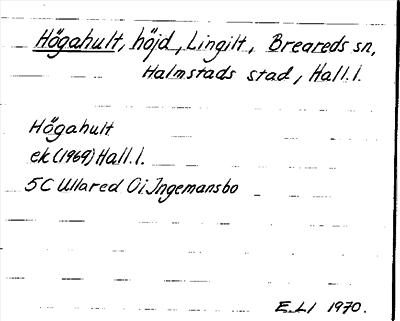 Högahult, höjd, Lingilt, Breareds sn,
Halmstads stad, Hall.l.
Högahult
ek (1969) Hall.l.
5C Ullared 0i Ingemansbo
E.L.l 1970.